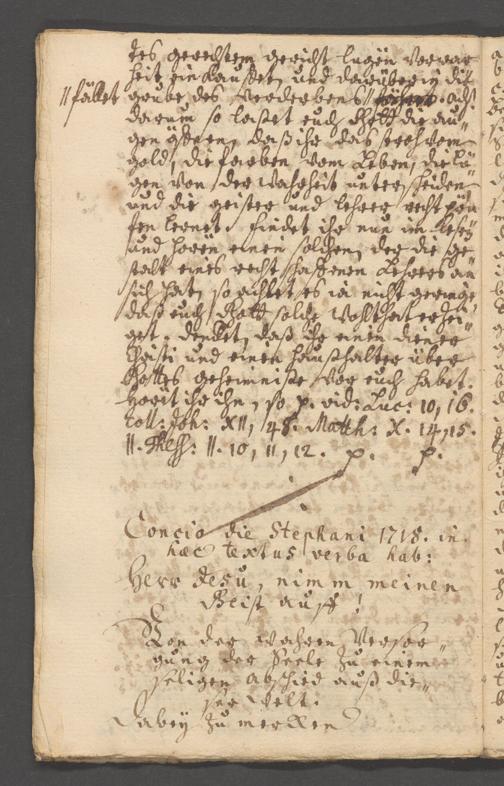 des gerechten gericht lügen vor war
heit einkauffet, und darüber in die
// fället grube des verderbens // ach!
darum so lasset euch Gott die au-
gen öffnen, daß ihr das von
gold, die farben vom Leben, die lü-
gen von der Wahrheit unterscheiden
und die geister und lehrer recht prü-
fen lernet. findet ihr nun im lesen
und hören einen solchen, der die ge-
stalt eines rechtschaffenen Lehrers an
sich hat, so achtet es ja nicht geringe
daß euch Gott solche Wohlthat erzei-
get. dencket, daß ihr einen diener
Christi und einen haußhalter über
Gottes geheimniße vor euch habet.
höret ihr ihn, so p. vid: Luc: 10, 16.
coll: Joh: XII, 48. Matth: X. 14, 15.
II. Thess: II. 10, 11, 12. p. p.
Concio die Stephani 1718. in
hæc textus verba hab:
Herr Jesu, nimm meinen
Geist auff!
Von der wahren Versor-
gung der Seele zu einem
seligen abschied auß die-
ser Welt.
dabey zu mercken